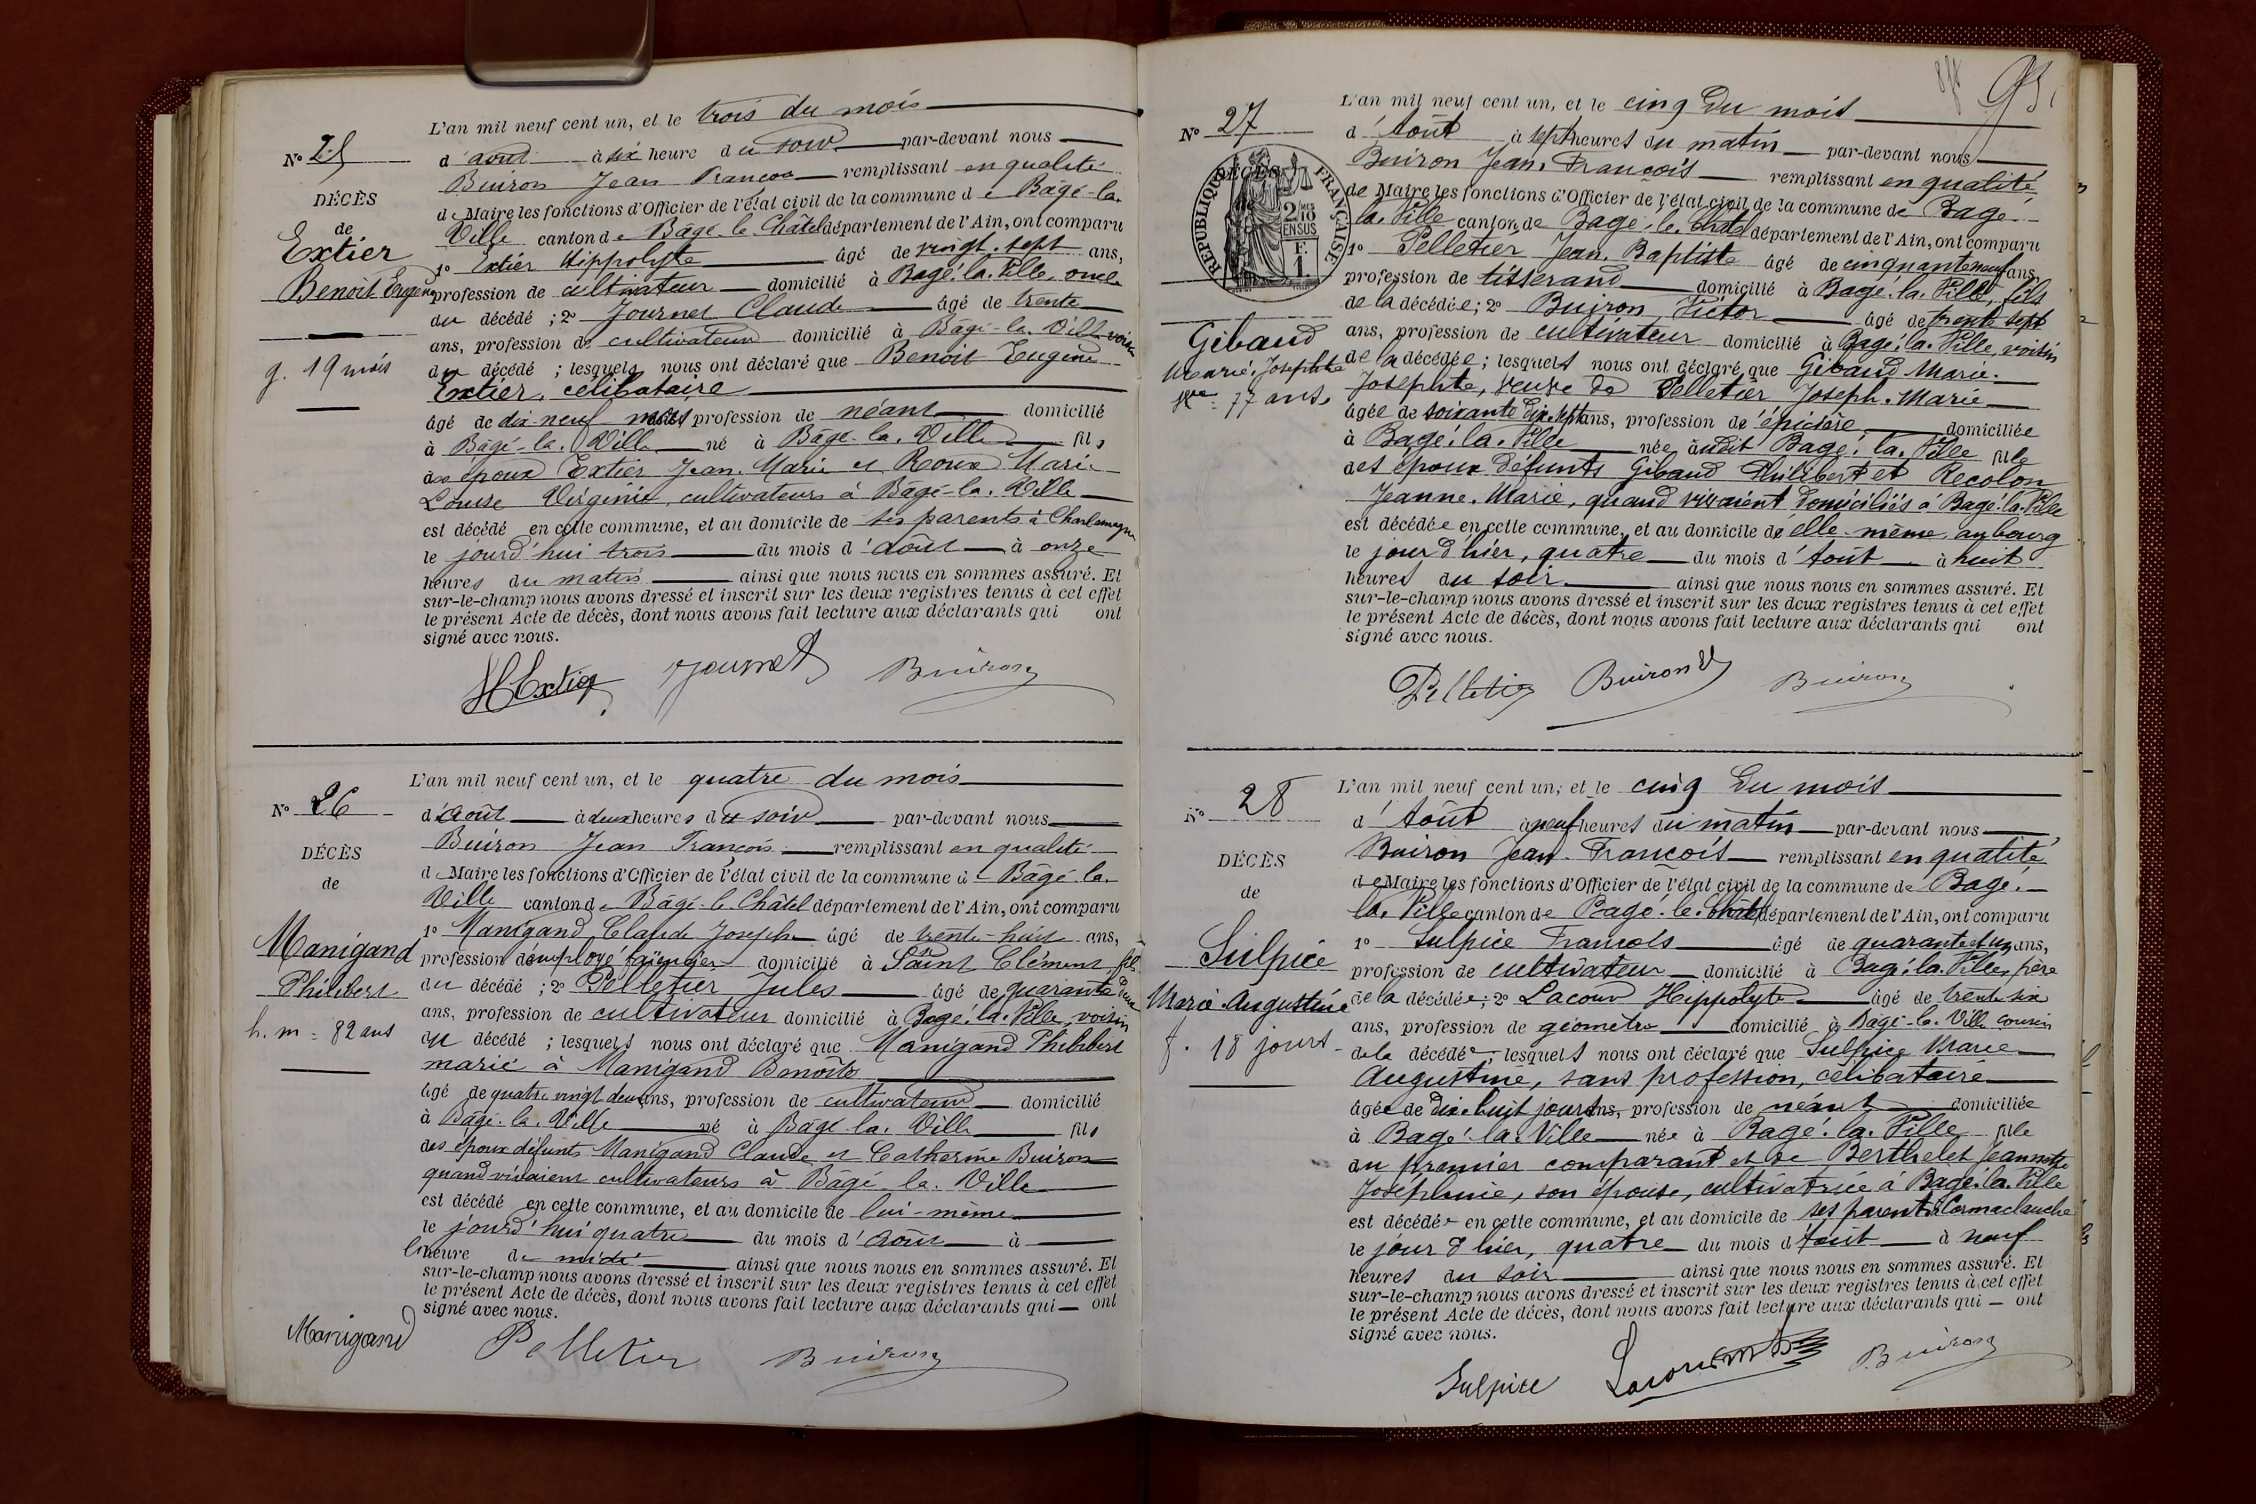 N° 25
DÉCÈS
de
Extier
Benoit Eugène
g. 19 mois
L'an mil neuf cent un, et le trois du mois
d'août à six heure du soir par-devant nous
Buiron Jean François remplissant en qualité
de Maire les fonctions d'Officier de l'état civil de la commune de Bâgé-la-
Ville canton de Bâgé-le-Châtel département de l'Ain, ont comparu
1° Extier Hippolyte âgé de vingt-sept ans,
profession de cultivateur domicilié à Bagé-la-Ville, oncle
du décédé ; 2° Journet Claude âgé de trente
ans, profession de cultivateur domicilié à Bâgé-la-Ville voisin
du décédé ; lesquels nous ont déclaré que Benoit Eugène
Extier, célibataire
âgé de dix-neuf mois profession de néant domicilié
à Bâgé-la-Ville né à Bâgé-la-Ville fils
des époux Extier Jean-Marie et Roux Marie
Louise Virginie, cultivateurs à Bâgé-la-Ville
est décédé en cette commune, et au domicile de ses parents à Charlemagne
le jourd'hui trois du mois d'août à onze
heures du matin ainsi que nous nous en sommes assuré. Et
sur-le-champ nous avons dressé et inscrit sur les deux registres tenus à cet effet
le présent Acte de décès, dont nous avons fait lecture aux déclarants qui ont
signé avec nous.
H Extier Journet Buiron
N° 26
DÉCÈS
de
Manigand
Philibert
h. m = 82 ans
L'an mil neuf cent un, et le quatre du mois
d'août à deux heures du soir par-devant nous
Buiron Jean François remplissant en qualité
de Maire les fonctions d'Officier de l'état civil de la commune de Bâgé-la-
Ville canton de Bâgé-le-Châtel département de l'Ain, ont comparu
1° Manigand Claude Joseph âgé de trente-huit ans,
profession d'employé domicilié à Saint Clément fils
du décédé ; 2° Pelletier Jules âgé de quarante deux
ans, profession de cultivateur domicilié à Bagé-la-Ville, voisin
du décédé ; lesquels nous ont déclaré que Manigand Philibert
marié à Manigand Benoîte
âgé de quatre vingt deux ans, profession de cultivateur domicilié
à Bâgé-la-Ville né à Bâgé-la-Ville fils
des époux défunts Manigand Claude et Catherine Buiron
quand vivaient cultivateurs à Bâgé-la-Ville
est décédé en cette commune, et au domicile de lui-même
le jourd'hui quatre du mois d'août à
l'heure de midi ainsi que nous nous en sommes assuré. Et
sur-le-champ nous avons dressé et inscrit sur les deux registres tenus à cet effet
le présent Acte de décès, dont nous avons fait lecture aux déclarants qui ont
signé avec nous.
Manigand Pelletier Buiron
95
N° 27
DÉCÈS
RÉPUBLIQUE FRANÇAISE
2/10 EN SUS
F. 1
Gibaud
Marie-Josephte
Vve = 77 ans
L'an mil neuf cent un, et le cinq du mois
d'Août à sept heures du matin par-devant nous
Buiron Jean-François remplissant en qualité
de Maire les fonctions d'Officier de l'état civil de la commune de Bagé-
la-Ville canton de Bagé-le-Châtel département de l'Ain, ont comparu
1° Pelletier Jean-Baptiste âgé de cinquante neuf ans,
profession de tisserand domicilié à Bagé-la-Ville, fils
de la décédée ; 2° Buiron Victor âgé de trente sept
ans, profession de cultivateur domicilié à Bagé-la-Ville, voisin
de la décédée ; lesquels nous ont déclaré que Gibaud Marie-
Josephte, veuve de Pelletier Joseph-Marie
âgée de soixante dix-sept ans, profession d'épicière domiciliée
à Bagé-la-Ville née audit Bagé-la-Ville fille
des époux défunts Gibaud Philibert et Recolon
Jeanne-Marie, quand vivaient domiciliés à Bagé-la-Ville
est décédée en cette commune, et au domicile de elle-même au bourg
le jour d'hier, quatre du mois d'Août à huit
heures du soir ainsi que nous nous en sommes assuré. Et
sur-le-champ nous avons dressé et inscrit sur les deux registres tenus à cet effet
le présent Acte de décès, dont nous avons fait lecture aux déclarants qui ont
signé avec nous.
Pelletier Buiron V Buiron
N° 28
DÉCÈS
de
Sulpice
Marie-Augustine
f. 18 jours
L'an mil neuf cent un, et le cinq du mois
d'Août à neuf heures du matin par-devant nous
Buiron Jean-François remplissant en qualité
de Maire les fonctions d'Officier de l'état civil de la commune de Bagé-
la-Ville canton de Bagé-le-Châtel département de l'Ain, ont comparu
1° Sulpice François âgé de quarante et un ans,
profession de cultivateur domicilié à Bagé-la-Ville, père
de la décédée ; 2° Lacour Hippolyte âgé de trente six
ans, profession de géomètre domicilié à Bâgé-la-Ville cousin
de la décédée ; lesquels nous ont déclaré que Sulpice Marie
Augustine, sans profession, célibataire
âgée de dix-huit jours ans, profession de néant domiciliée
à Bagé-la-Ville née à Bagé-la-Ville fille
du premier comparant et de Berthelet Jeannette
Joséphine, son épouse, cultivatrice à Bagé-la-Ville
est décédée en cette commune, et au domicile de ses parents à Cormaclauche
le jour d'hier, quatre du mois d'Août à neuf
heures du soir ainsi que nous nous en sommes assuré. Et
sur-le-champ nous avons dressé et inscrit sur les deux registres tenus à cet effet
le présent Acte de décès, dont nous avons fait lecture aux déclarants qui ont
signé avec nous.
Sulpice Lacour Buiron